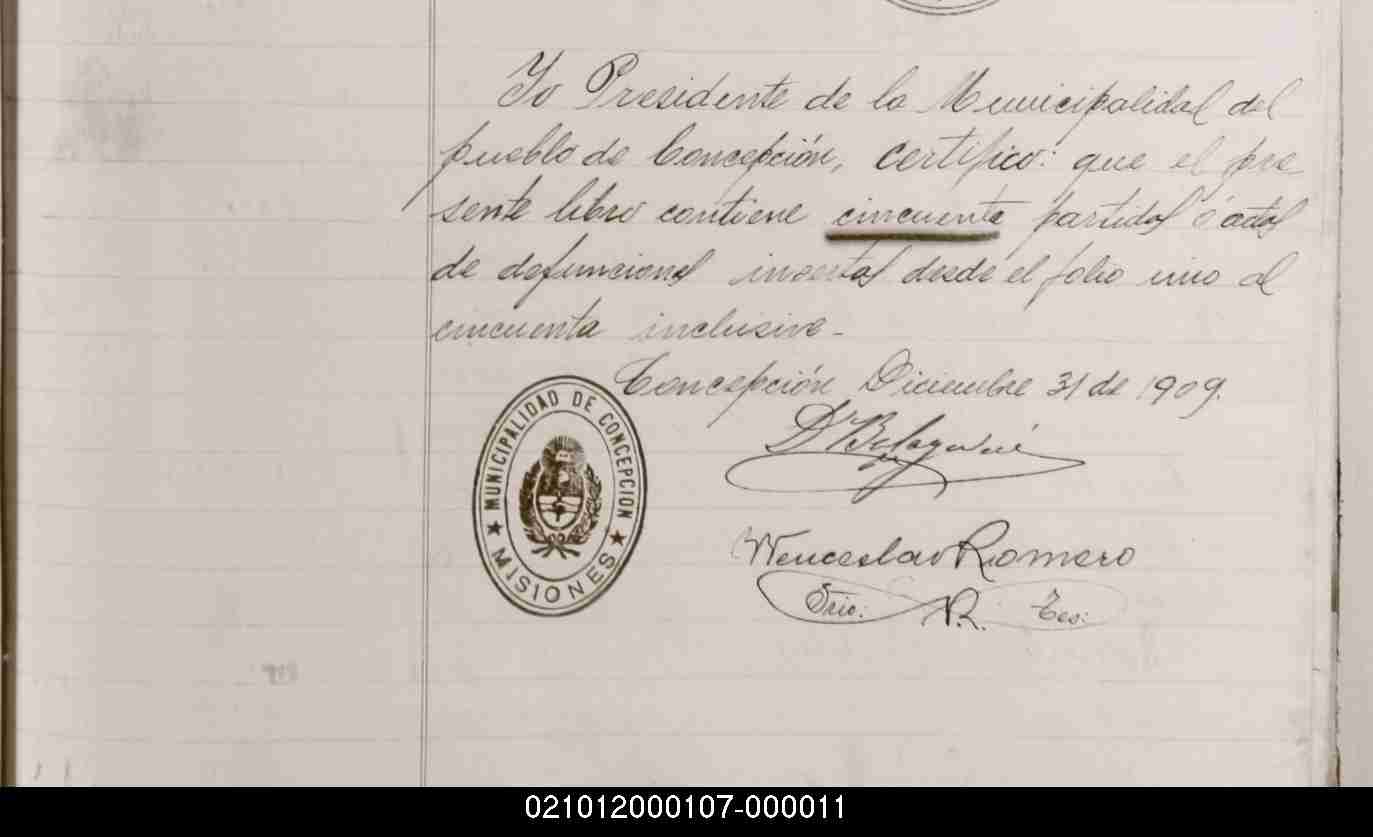 Yo Presidente de la Municipalidad del
pueblo de Concepción, certifico: que el pre-
sente libro contiene cincuenta partidas ó actas
de defunciones insertas desde el folio uno al
cincuenta inclusive-
Concepción Diciembre 31 de 1909.
MUNICIPALIDAD DE CONCEPCION
★ MISIONES ★
Wenceslao Romero
Srio. R. Tes:
021012000107-000011